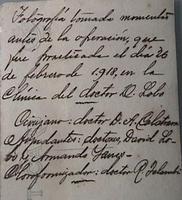 Fotografía tomada momentos
antes de la operación, que
fué practicada el día 26
de febrero de 1918, en la
Clínica del doctor D. Lobo
Cirujano: doctor D. A.
Ayudantes: doctores, David Lo-
bo y Armando
Cloroformizador: doctor R.